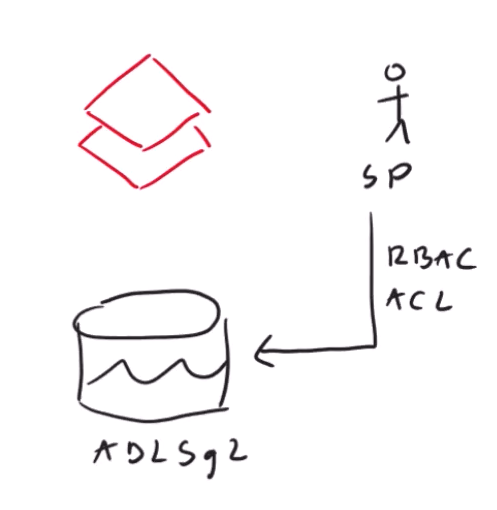 SP
RBAC
ACL
ADLSg2